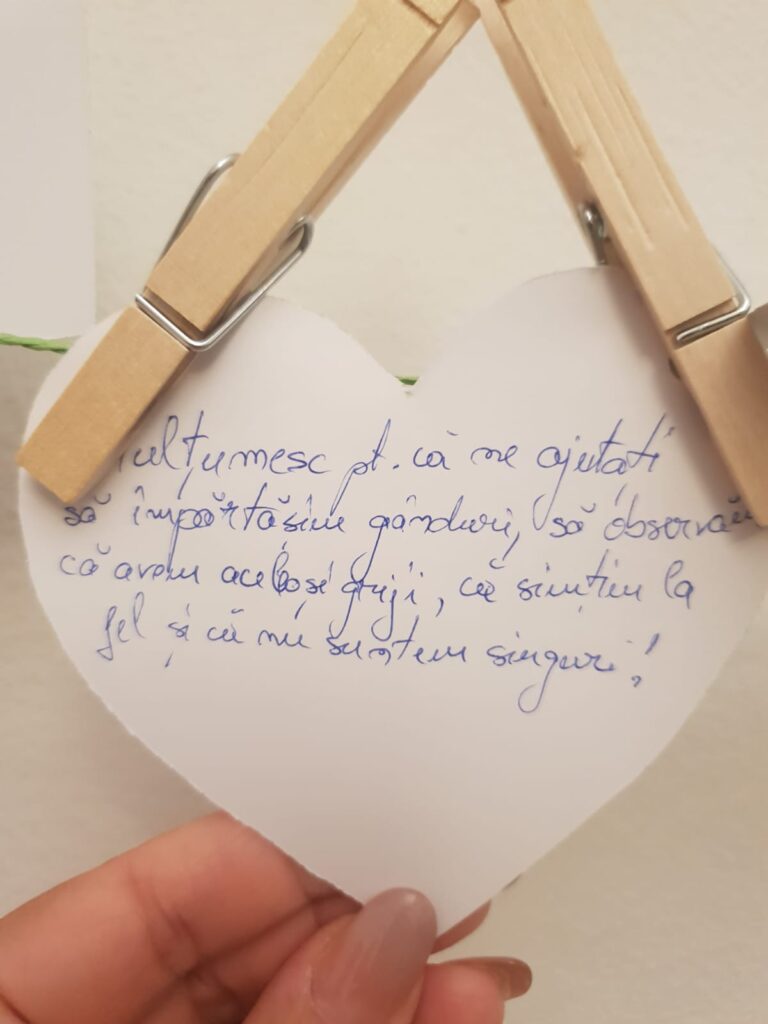 ulțumesc pt. că ne ajutați
să împărtășim gânduri, să observăm
că avem aceleași griji, că simțim la
fel și că nu suntem singuri!